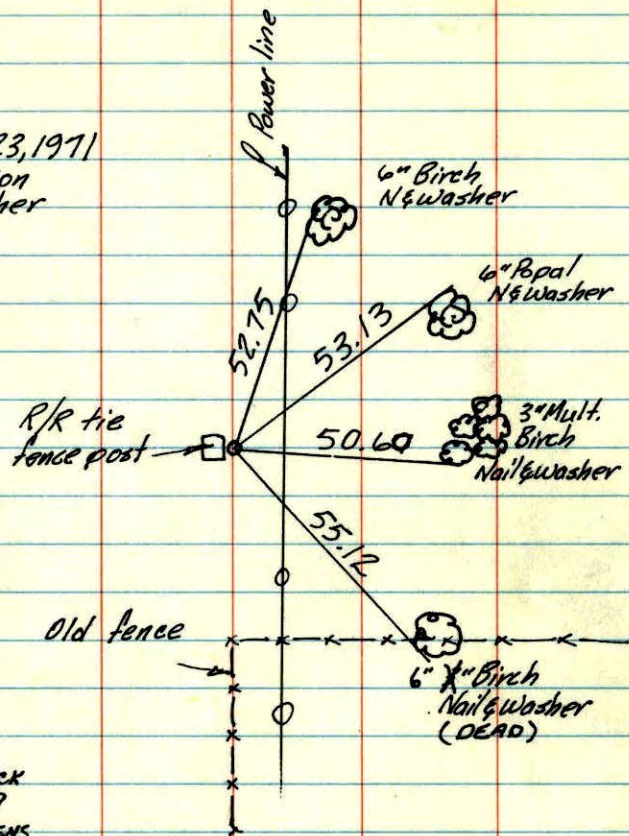 Power line
23,1971
on
her
6" Birch
N&Washer
6" Popal
N&Washer
52.75
53.13
R/R tie
fence post
50.60
3" Mult.
Birch
Nail&Washer
55.12
Old fence
6" Birch
Nail&Washer
(DEAD)
CK